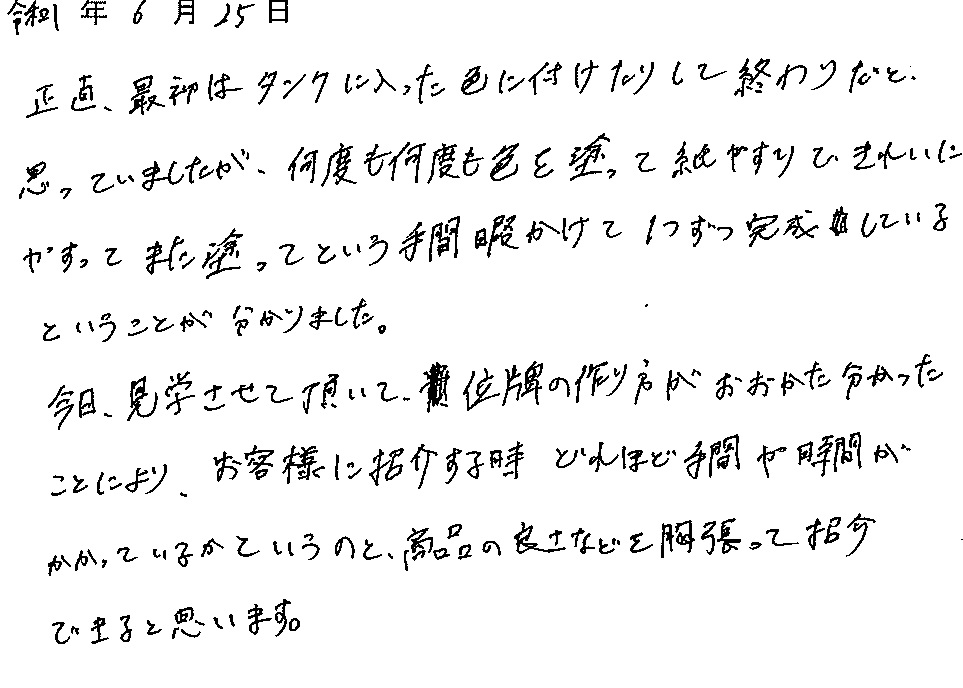 令和1年6月25日
正直、最初はタンクに入った色に付けたりして終わりだと、
思っていましたが、何度も何度も色を塗って紙やすりで、きれいに
やすってまた塗ってという手間暇かけて1つずつ完成している
ということが分かりました。
今日、見学させて頂いて、位牌の作り方がおおかた分かった
ことにより、お客様に招介する時どれほど手間や時間が
かかっているかているのと、商品の良さなどを胸張って招介
できると思います。